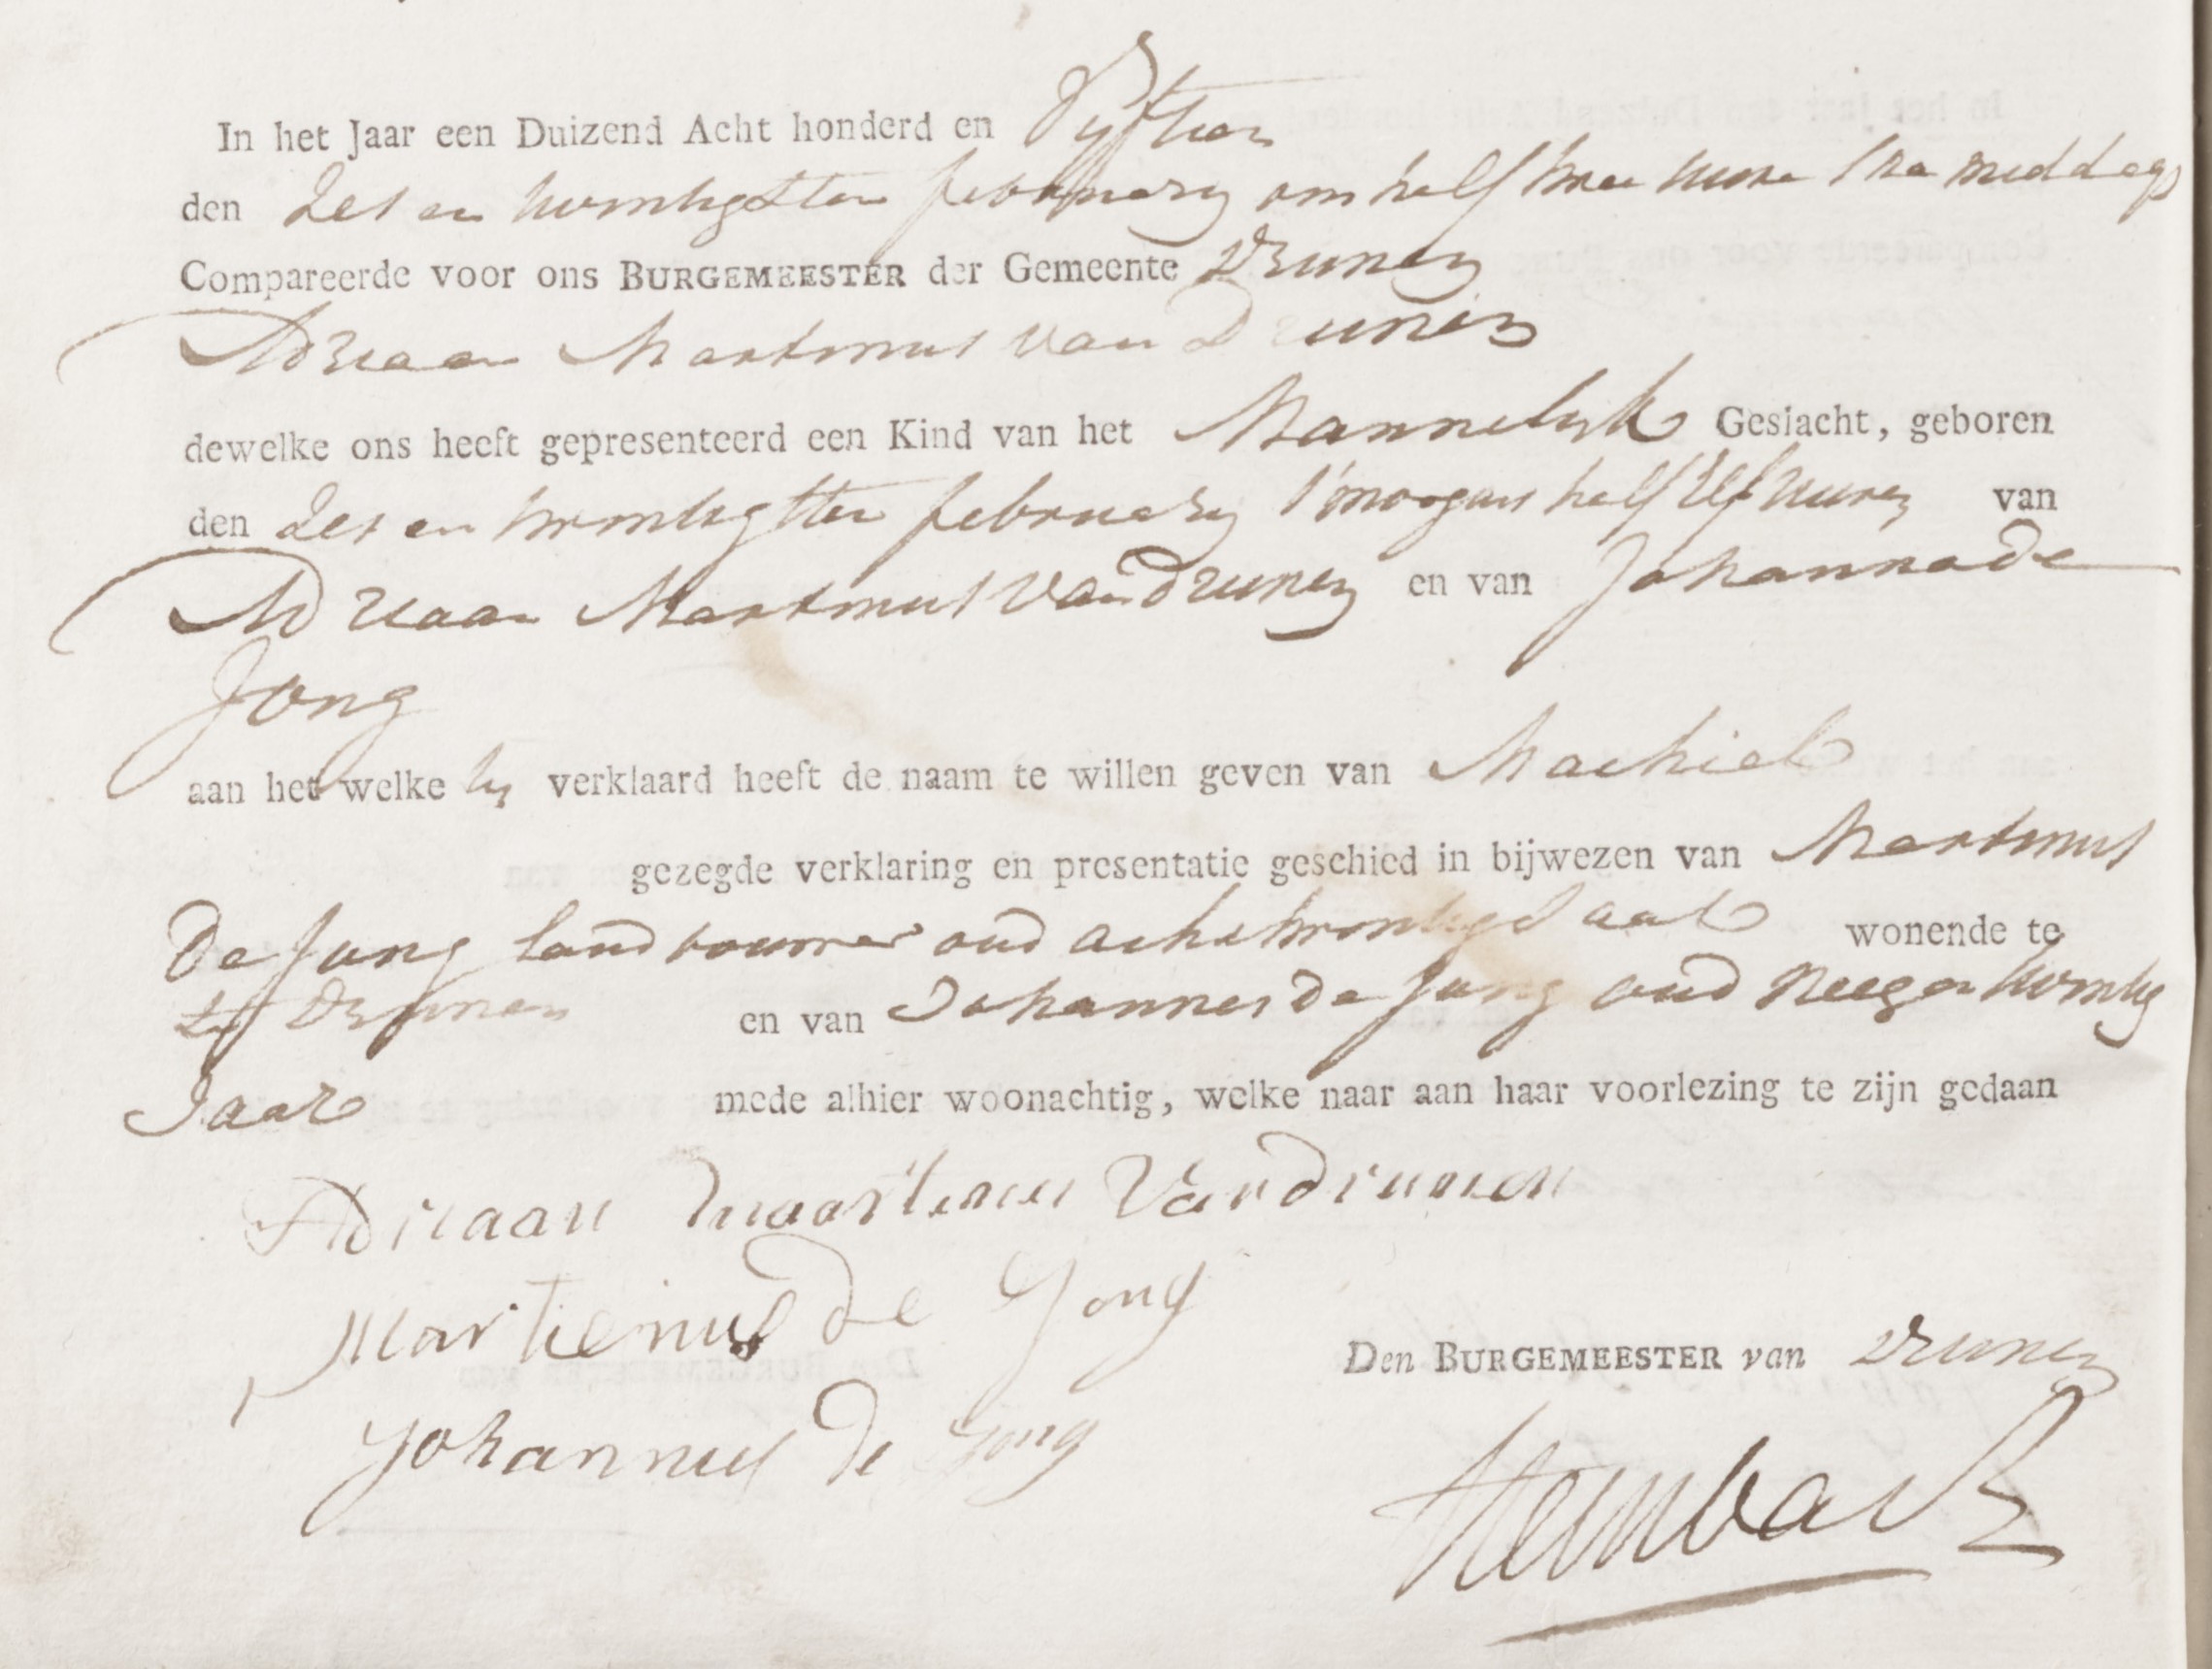 In het Jaar een Duizend Acht honderd en Vyftien
den Zes en twintigsten february om half twee uure s'na middags
Compareerde voor ons BURGEMEESTER der Gemeente Drunen
Adriaan Martinus van Drunen
dewelke ons heeft gepresenteerd een Kind van het Mannelyk Geslacht, geboren
den Zes en twintigsten february s'morgens half Elf uuren van
Adriaan Martinus van Drunen en van Johanna de
Jong
aan het welke hy verklaard heeft de naam te willen geven van Machiel
gezegde verklaring en presentatie geschied in bijwezen van Martinus
De Jong landbouwer oud acht twintig Jaar wonende te
te Drunen en van Johannes De Jong oud Neegen twintig
Jaar mede alhier woonachtig, welke naar aan haar voorlezing te zijn gedaan
Adriaan Maartienus Van Drunen
Martienus De Jong
Den BURGEMEESTER van Drunen
Johannes De Jong